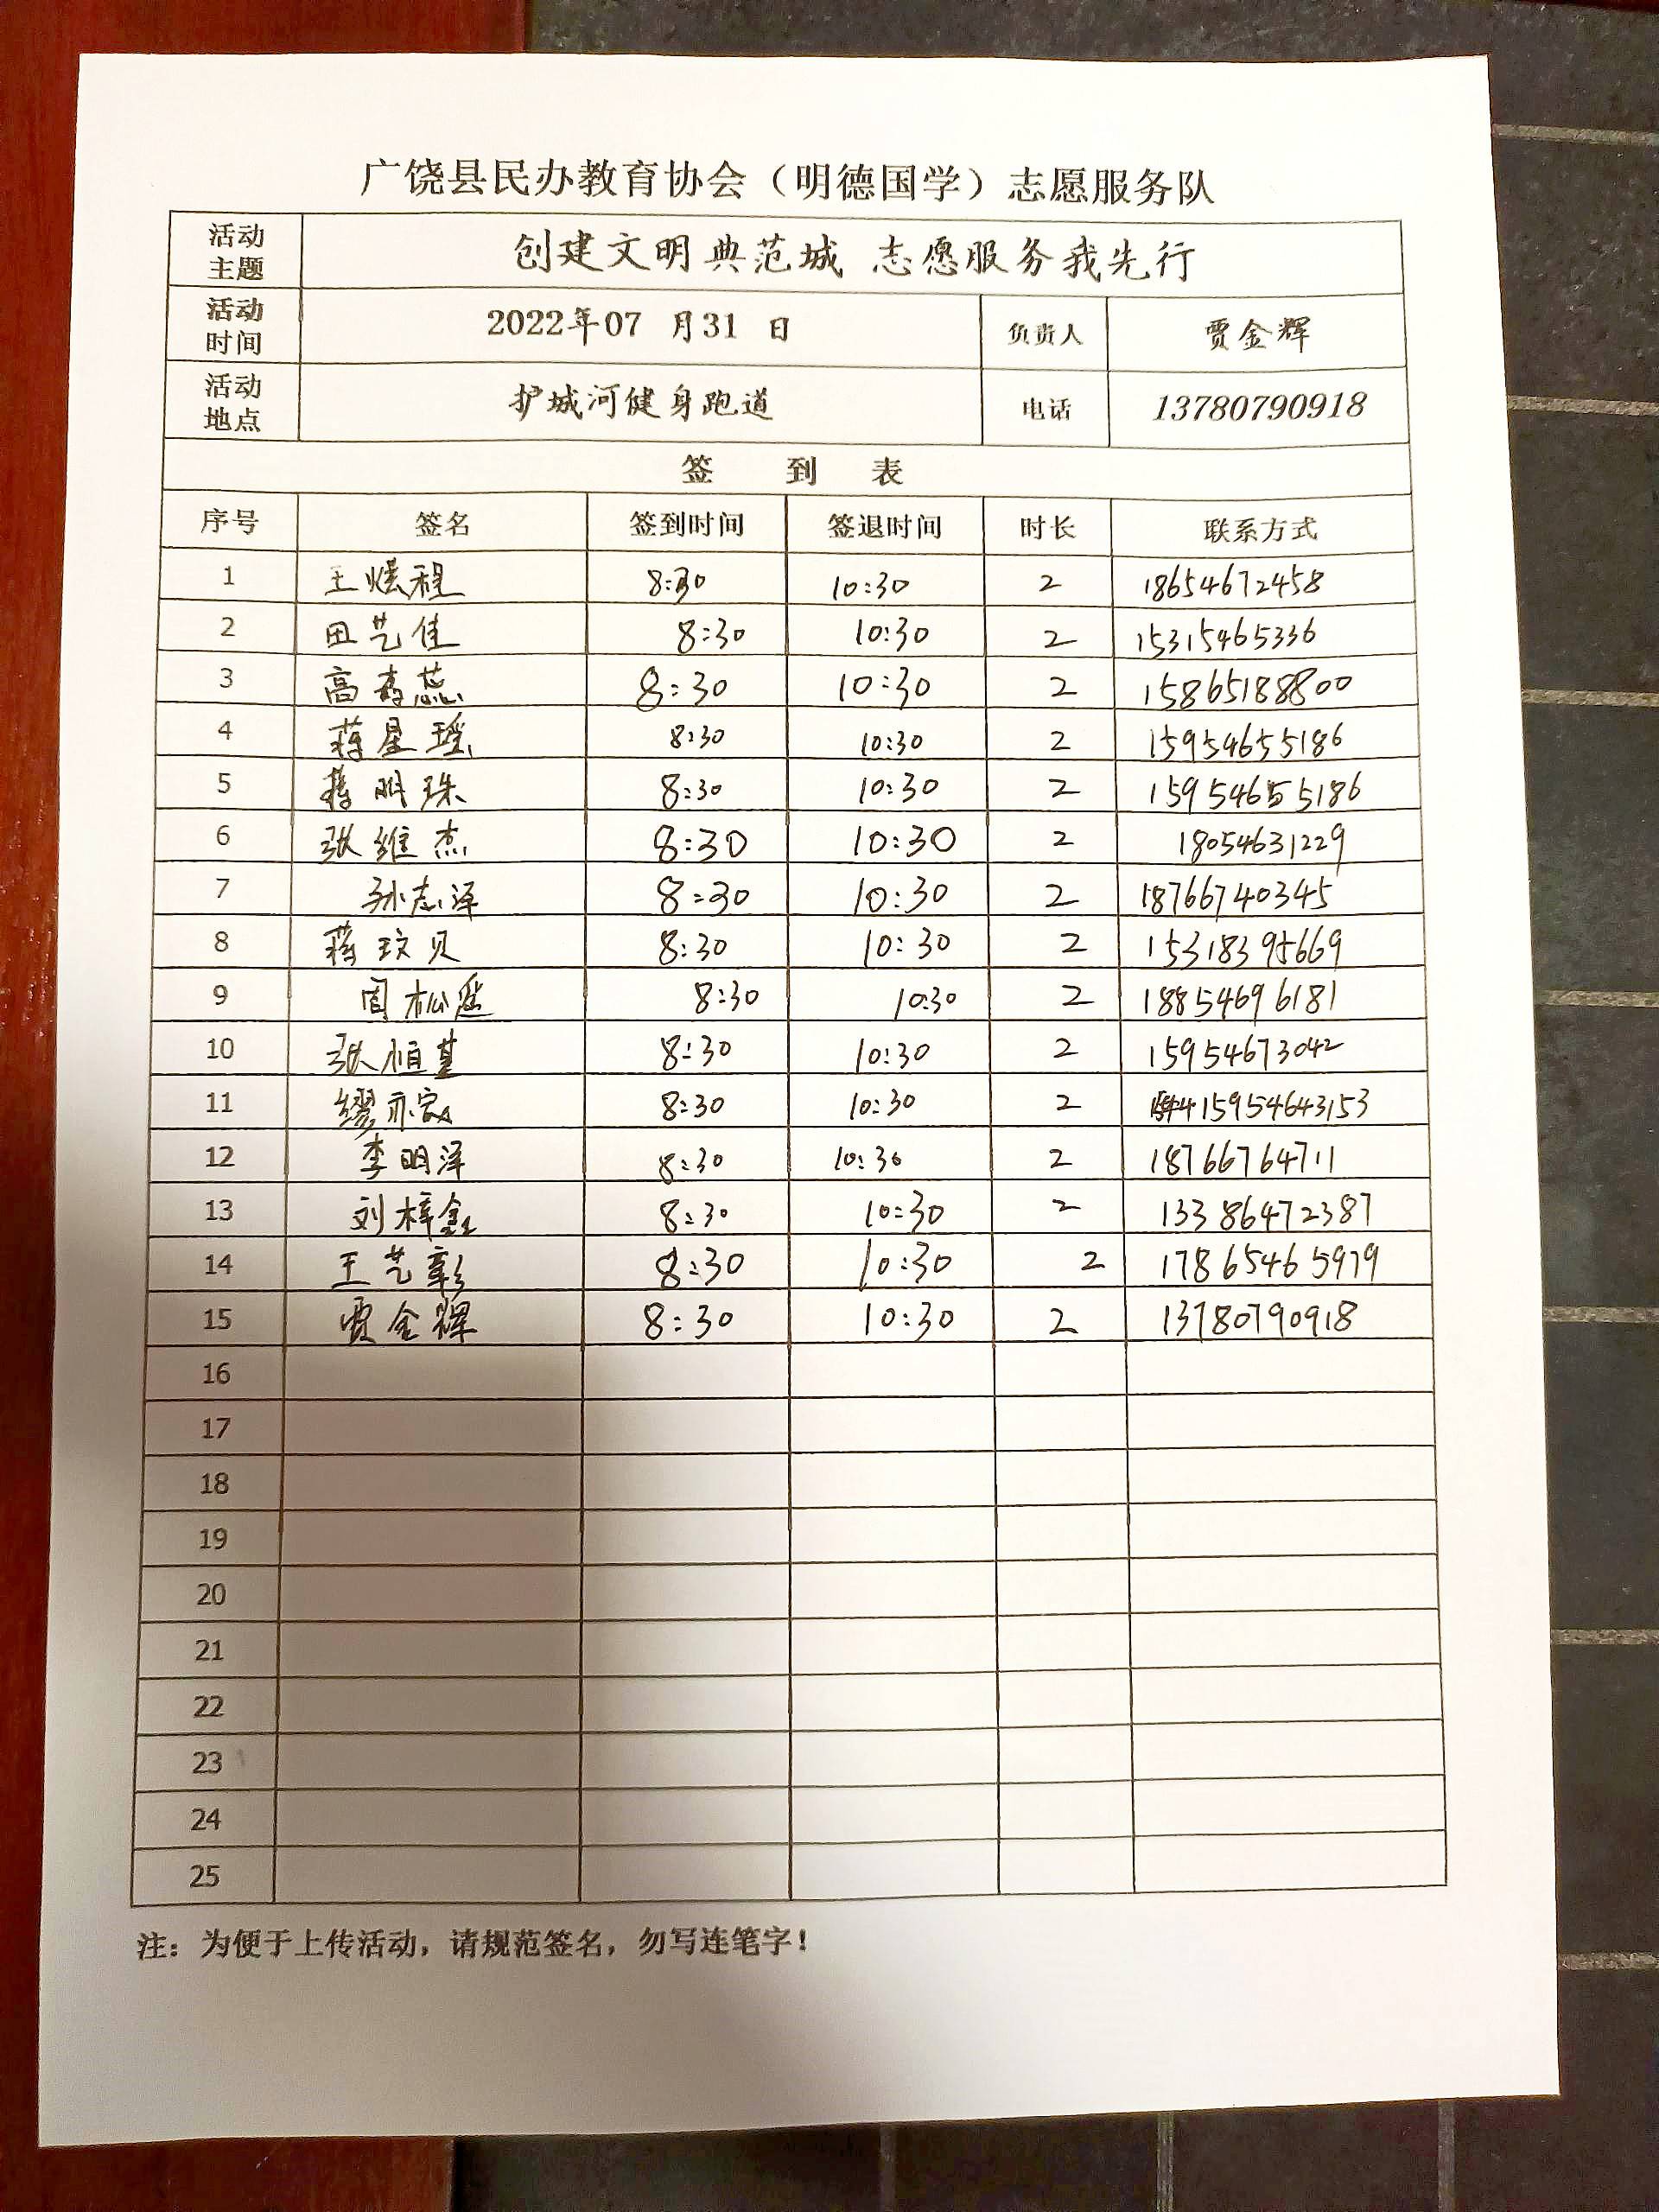 广饶县民办教育协会（明德国学）志愿服务队
活动主题 创建文明典范城 志愿服务我先行
活动时间 2022年07 月31 日 负责人 贾金辉
活动地点 护城河健身跑道 电话 13780790918
签 到 表
序号 签名 签到时间 签退时间 时长 联系方式
1 王煜程 8:30 10:30 2 18654672458
2 田艺佳 8:30 10:30 2 15315465336
3 高 蕊 8:30 10:30 2 15865188800
4 蒋星瑶 8:30 10:30 2 15954655186
5 蒋明珠 8:30 10:30 2 15954655186
6 张维杰 8:30 10:30 2 18054631229
7 孙志泽 8:30 10:30 2 18766740345
8 蒋玟贝 8:30 10:30 2 15318395669
9 周松 8:30 10:30 2 18854696181
10 张恒基 8:30 10:30 2 15954673042
11 缪亦 8:30 10:30 2 15954643153
12 李明泽 8:30 10:30 2 18766764711
13 刘梓鑫 8:30 10:30 2 13386472387
14 王艺彰 8:30 10:30 2 17865465979
15 贾金辉 8:30 10:30 2 13780790918
16
17
18
19
20
21
22
23
24
25
注：为便于上传活动，请规范签名，勿写连笔字！